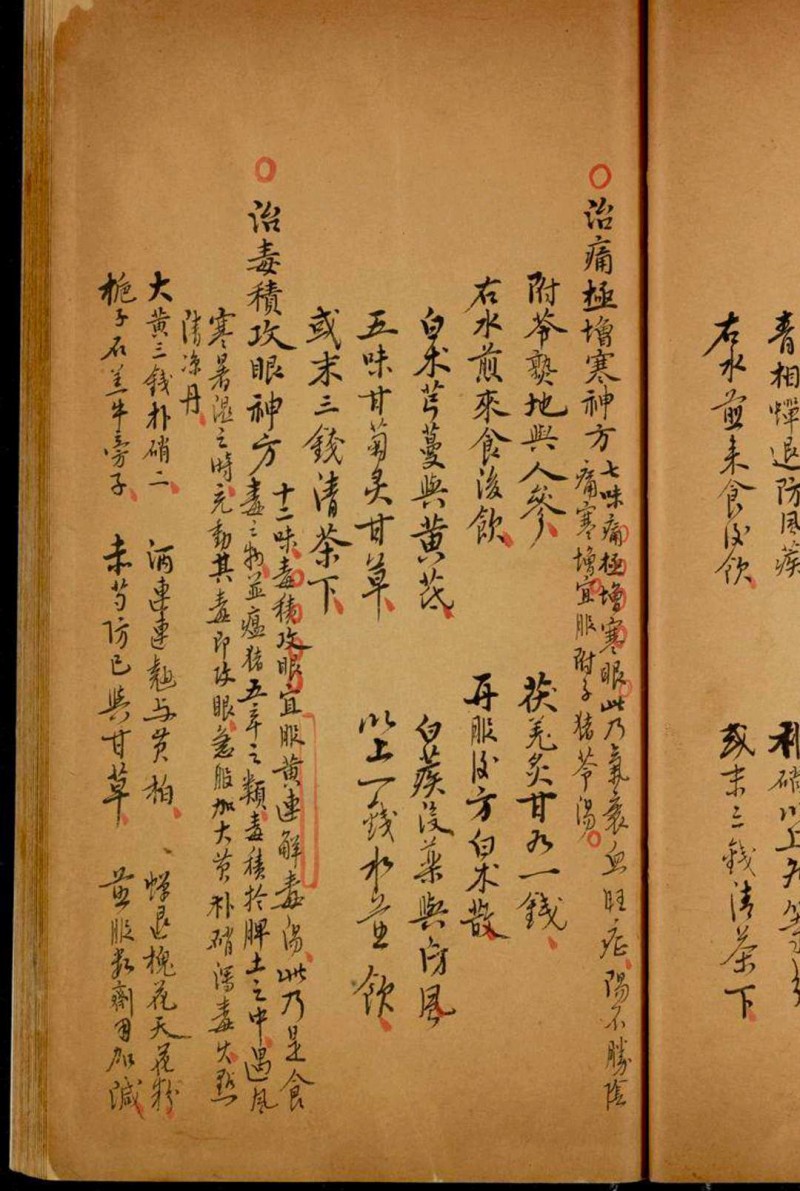 青相蟬退防風蒺
利硝以上九等
右水煎來食後飲
或末三錢清茶下
治痛極增寒神方
七味痛極增寒眼此乃氣衰血旺症陽不勝陰
痛寒增宜服附子猪苓湯
附苓熟地與人參
茯羌炙甘各一錢
右水煎來食後飲
再服後方白术散
白术芎蔓與黃芪
白蒺没藥與防風
五味甘菊炙甘草
以上一錢水煎飲
或末三錢清茶下
治毒積攻眼神方
十二味毒積攻眼宜服黄連解毒湯此乃是食
毒之物並瘟猪五辛之類毒積於脾土之中遇風
寒暑濕之時充動其毒即攻眼急服加大黄朴硝瀉毒火點
清凉丹
大黃三錢朴硝二
酒連連翹与黄柏
蟬退槐花天花粉
梔子石羔牛旁子
赤芍防已與甘草
煎服数劑用加減